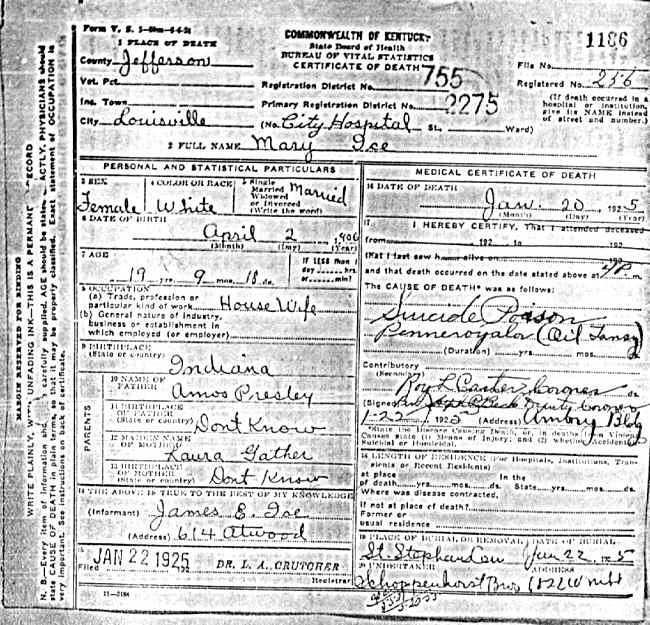 Form V. S. 1-
COMMONWEALTH OF KENTUCKY
State Board of Health
BUREAU OF VITAL STATISTICS
CERTIFICATE OF DEATH
1186
1 PLACE OF DEATH
County Jefferson
Vot. Pct.
Inc. Town
City Louisville
Registration District No. 755
Primary Registration District No. 2275
(No. City Hospital St., Ward)
File No.
Registered No. 256
(If death occurred in a
hospital or institution,
give its NAME instead
of street and number.)
2 FULL NAME Mary Ice
PERSONAL AND STATISTICAL PARTICULARS
3 SEX
Female
4 COLOR OR RACE
White
5 Single
Married
Widowed
or Divorced
(Write the word)
Married
6 DATE OF BIRTH
April 2 1906
(Month) (Day) (Year)
7 AGE
19 yrs. 9 mos. 18 ds.
IF LESS than 1
day hrs.
or min.
8 OCCUPATION
(a) Trade, profession or
particular kind of work House Wife
(b) General nature of industry,
business or establishment in
which employed (or employer)
9 BIRTHPLACE
(State or country)
Indiana
PARENTS
10 NAME OF
FATHER
Amos Presley
11 BIRTHPLACE
OF FATHER
(State or country)
Dont Know
12 MAIDEN NAME
OF MOTHER
Laura Gather
13 BIRTHPLACE
OF MOTHER
(State or country)
Dont Know
14 THE ABOVE IS TRUE TO THE BEST OF MY KNOWLEDGE
(Informant) James E. Ice
(Address) 614 Atwood
15
Filed JAN 22 1925
DR. L. A. CRUTCHER
Registrar
MEDICAL CERTIFICATE OF DEATH
16 DATE OF DEATH
Jan. 20 1925
(Month) (Day) (Year)
17 I HEREBY CERTIFY, That I attended deceased
from 192 to 192
that I last saw h alive on 192
and that death occurred on the date stated above at 4 P m.
The CAUSE OF DEATH* was as follows:
Suicide Poison
Penneroyalor (Oil Tansy)
(Duration) yrs. mos.
Contributory
(Secondary)
Roy L Carter Coroner
ds.
(Signed) Deputy Coroner
1-22 1925 (Address) Armory Bldg
*State the Disease Causing Death, or, in deaths from Violent
Causes state (1) Means of Injury; and (2) whether Accidental,
Suicidal or Homicidal.
18 LENGTH OF RESIDENCE (For Hospitals, Institutions, Tran-
sients or Recent Residents)
At place In the
of death yrs. mos. ds. State yrs. mos. ds.
Where was disease contracted,
if not at place of death?
Former or
usual residence
19 PLACE OF BURIAL OR REMOVAL DATE OF BURIAL
St Stephen Cem Jan 22 1925
20 UNDERTAKER ADDRESS
Schoppenhorst Bros 1832 W
MARGIN RESERVED FOR BINDING
WRITE PLAINLY, WITH UNFADING INK—THIS IS A PERMANENT RECORD